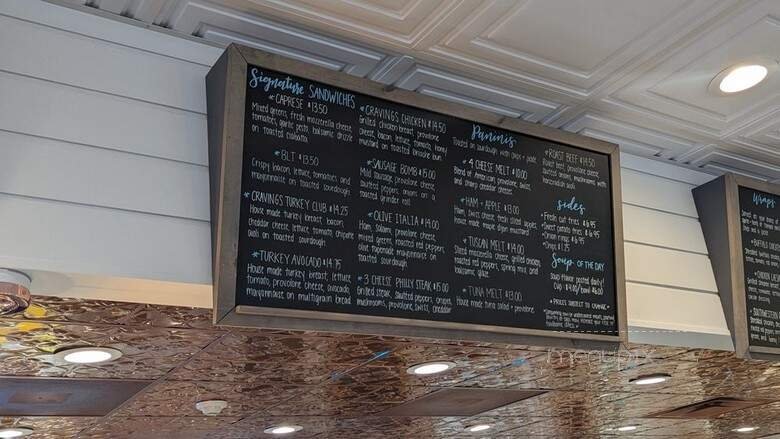 Signature SANDWICHES
*CAPRESE $13.50
Mixed greens, fresh mozzarella cheese
tomatoes, garlic pesto, balsamic drizzle
on toasted ciabatta
*BLT $13.50
Crispy bacon, lettuce, tomatoes and
mayonnaise on toasted sourdough
CRAVINGS TURKEY CLUB $14.75
House made turkey breast, bacon,
cheddar cheese, lettuce, tomato, chipotle
aioli on toasted sourdough
*TURKEY AVOCADO $14.75
House made turkey breast, lettuce
tomato, provolone cheese, avocado,
mayonnaise on multigrain bread
*CRAVINGS CHICKEN $14.50
Grilled chicken breast, provolone
cheese, bacon, lettuce, tomato, honey
mustard on toasted brioche bun
*SAUSAGE BOMB $15.00
Mild sausage, provolone cheese,
sautéed peppers, onions on a
toasted grinder roll
*OLIVE ITALIA $14.00
Ham, salami, provolone cheese,
mixed greens, roasted red peppers
olive tapenade mayonnaise
on toasted sourdough
*3 CHEESE PHILLY STEAK $15.00
Grilled steak, sautéed peppers, onions,
mushrooms, provolone, swiss, cheddar
Paninis
Toasted on sourdough with chips + pickle
*4 CHEESE MELT $10.00
Blend of American, provolone, swiss,
and sharp cheddar cheese
*HAM + APPLE $13.00
Ham, swiss cheese, fresh sliced apple,
house made maple aioli
*TUSCAN MELT $14.00
Sliced mozzarella cheese, grilled chicken,
roasted red peppers, spring mix, and
balsamic glaze
*TUNA MELT $13.00
House made tuna salad + provolone
*ROAST BEEF $14.50
Roast beef, provolone cheese,
sautéed onions + mushrooms,
horseradish aioli
sides
*Fresh cut fries $6.95
*Sweet potato fries $6.95
*Onion rings $6.95
*Chips $1.75
Soup OF THE DAY
Soup flavor posted daily!
Cup $4.00/bowl $6.00
*PRICES SUBJECT TO CHANGE
Wraps